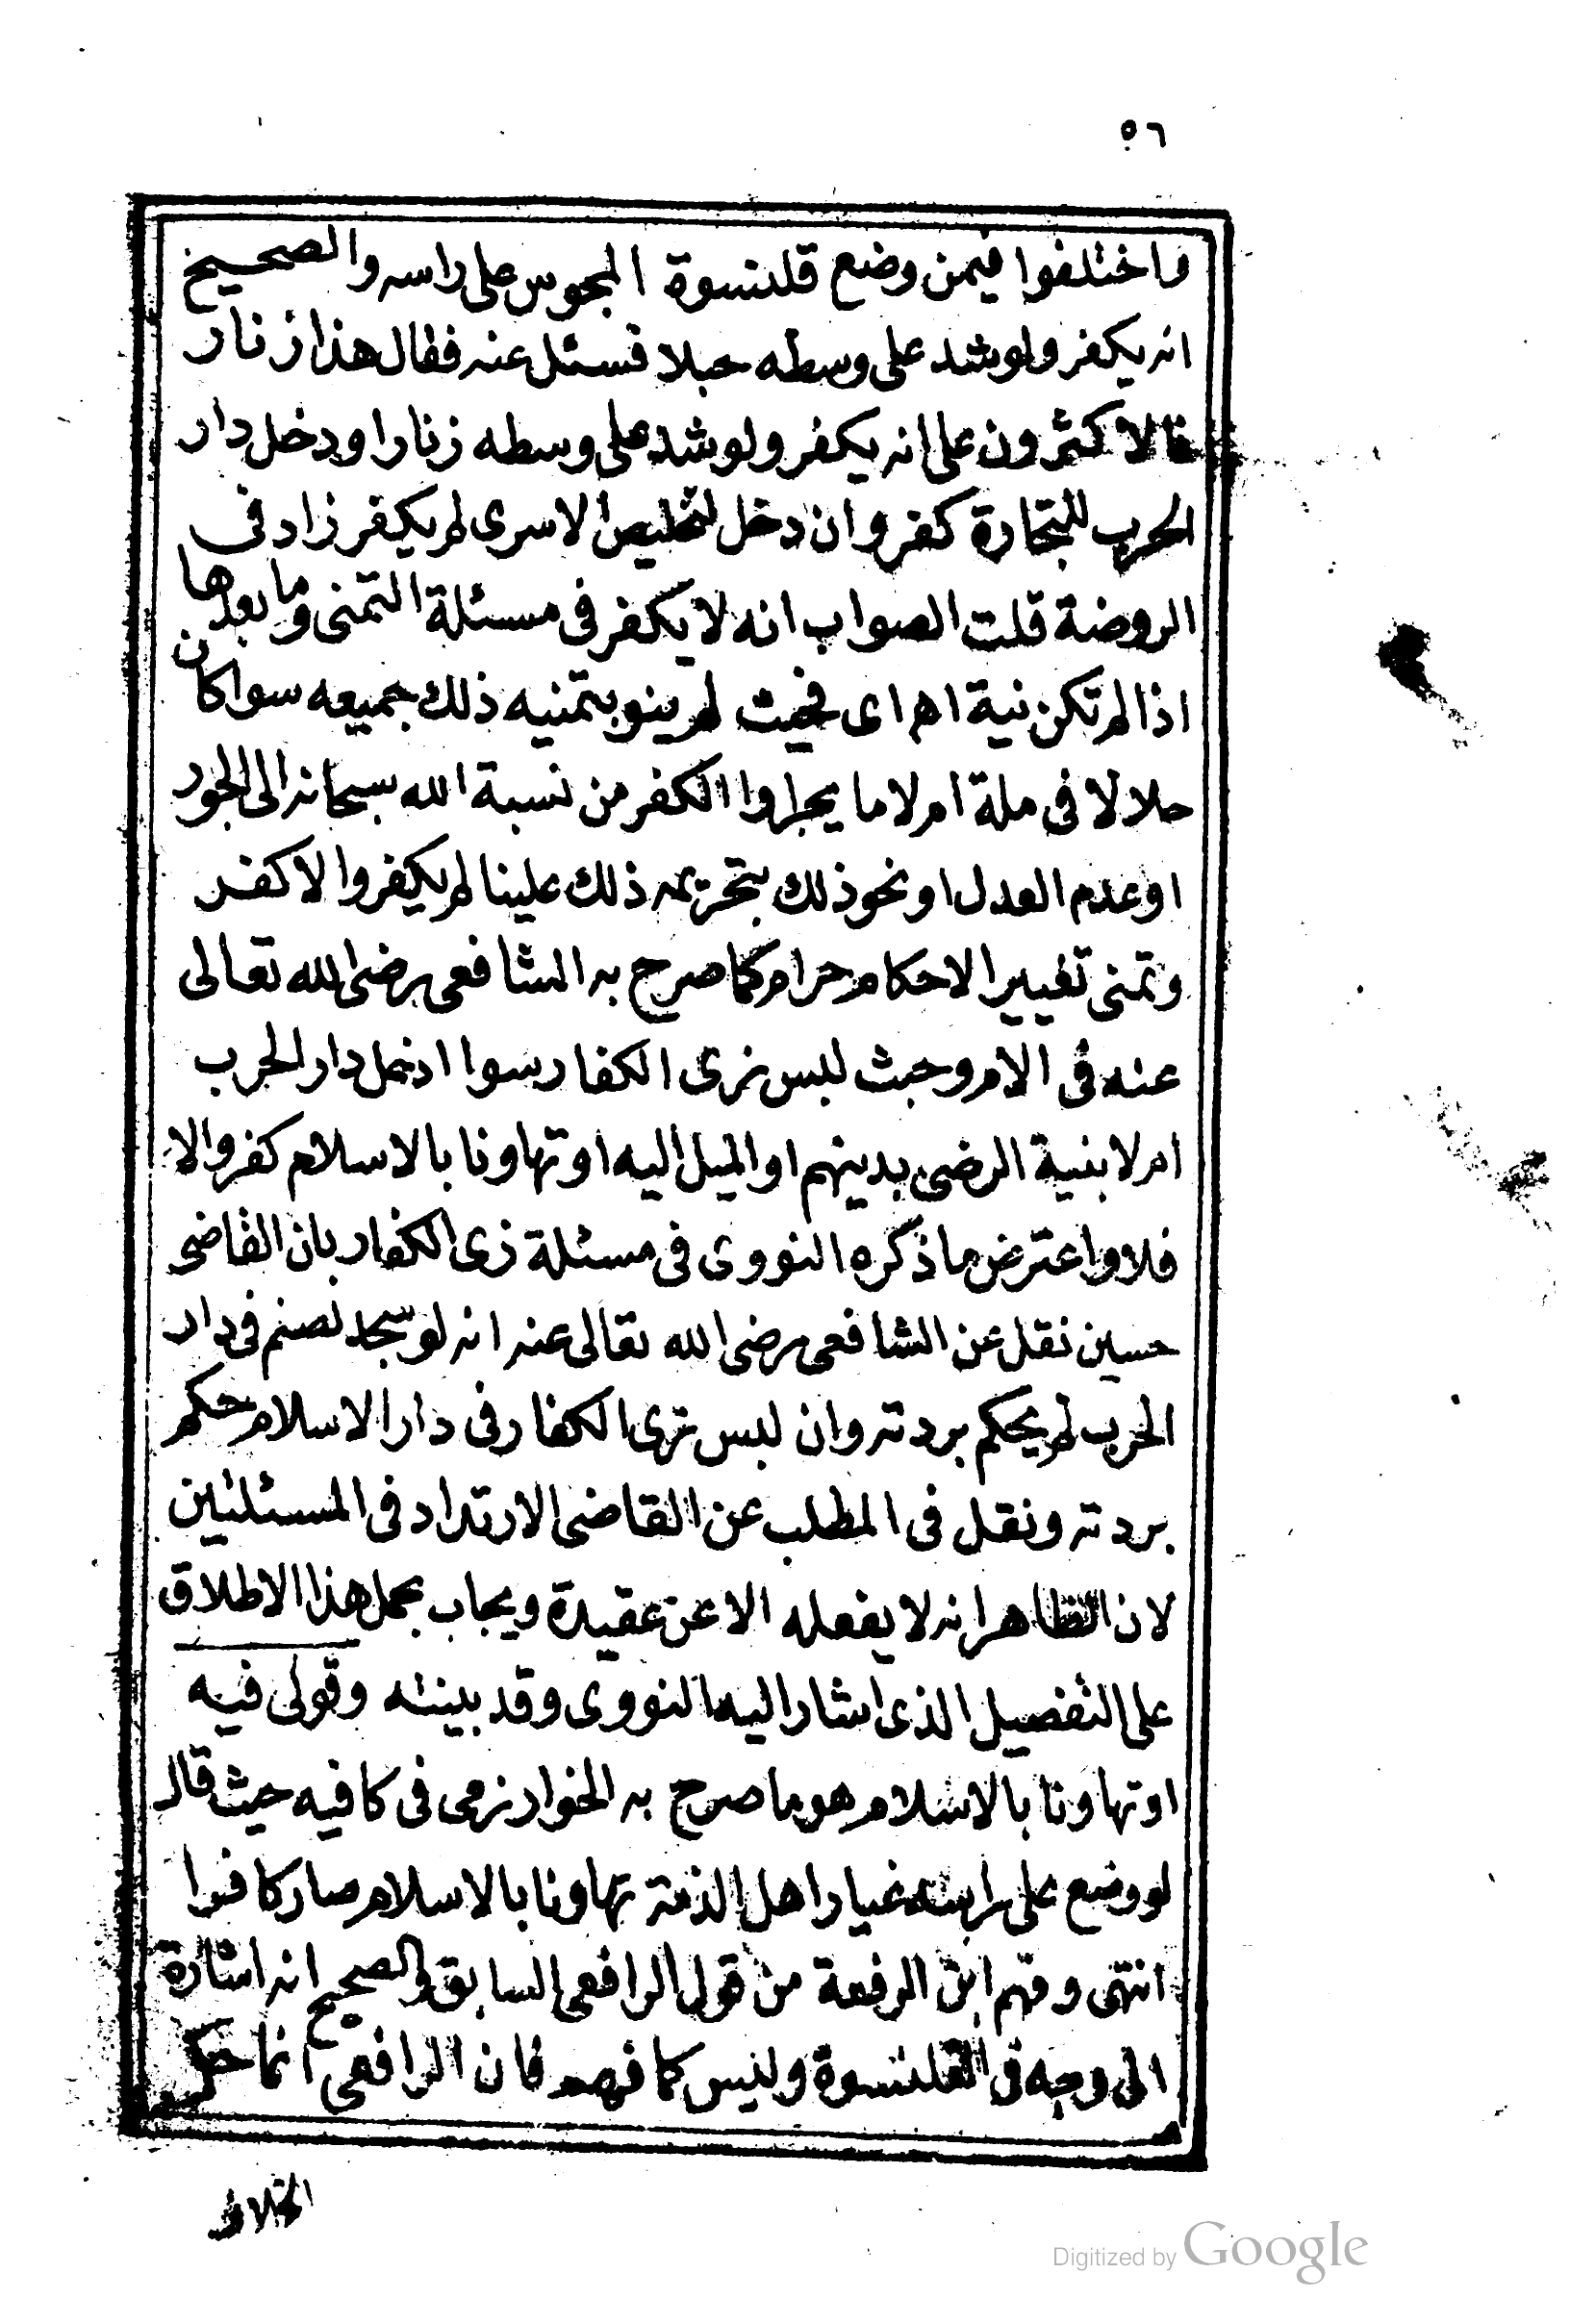 ٥٦
واختلفوا فيمن وضع قلنسوة المجوس على راسه والصحيح
انه يكفر ولو شد على وسطه حبلا فسئل عنه فقال هذا زنار
فالاكثرون على انه يكفر ولو شد على وسطه زنارا ودخل دار
الحرب للتجارة كفر وان دخل لتخليص الاسرى لم يكفر زاد فى
الروضة قلت الصواب انه لا يكفر فى مسئلة التمنى وما بعدها
اذا لم تكن نية اهـ اى فحيث لم ينو بتمنيه ذلك جميعه سوا كان
حلالا فى ملة ام لا ما يجر الكفر من نسبة الله سبحانه الى الجور
او عدم العدل او نحو ذلك بتحريمه ذلك علينا لم يكفر والا كفر
وتمنى تغيير الاحكام حرام كما صرح به الشافعى رضى الله تعالى
عنه فى الام وحيث لبس زى الكفار سوا ادخل دار الحرب
ام لا بنية الرضى بدينهم او الميل اليه او تهاونا بالاسلام كفر والا
فلا واعترض ما ذكره النووى فى مسئلة زى الكفار بان القاضى
حسين نقل عن الشافعى رضى الله تعالى عنه انه لو سجد لصنم فى دار
الحرب لم يحكم بردته وان لبس زى الكفار فى دار الاسلام حكم
بردته ونقل فى المطلب عن القاضى الارتداد فى المسئلتين
لان الظاهر انه لا يفعله الا عن عقيدة ويجاب بحمل هذا الاطلاق
على التفصيل الذى اشار اليه النووى وقد بينته وقولى فيه
او تهاونا بالاسلام هو ما صرح به الخوارزمى فى كافيه حيث قال
لو وضع على راسه غيار اهل الذمة تهاونا بالاسلام صار كافرا
انتهى وفهم ابن الرفعة من قول الرافعى السابق والصحيح انه اشارة
الى وجه فى القلنسوة وليس كما فهم فان الرافعى انما حكى
الخلاف
Digitized by Google